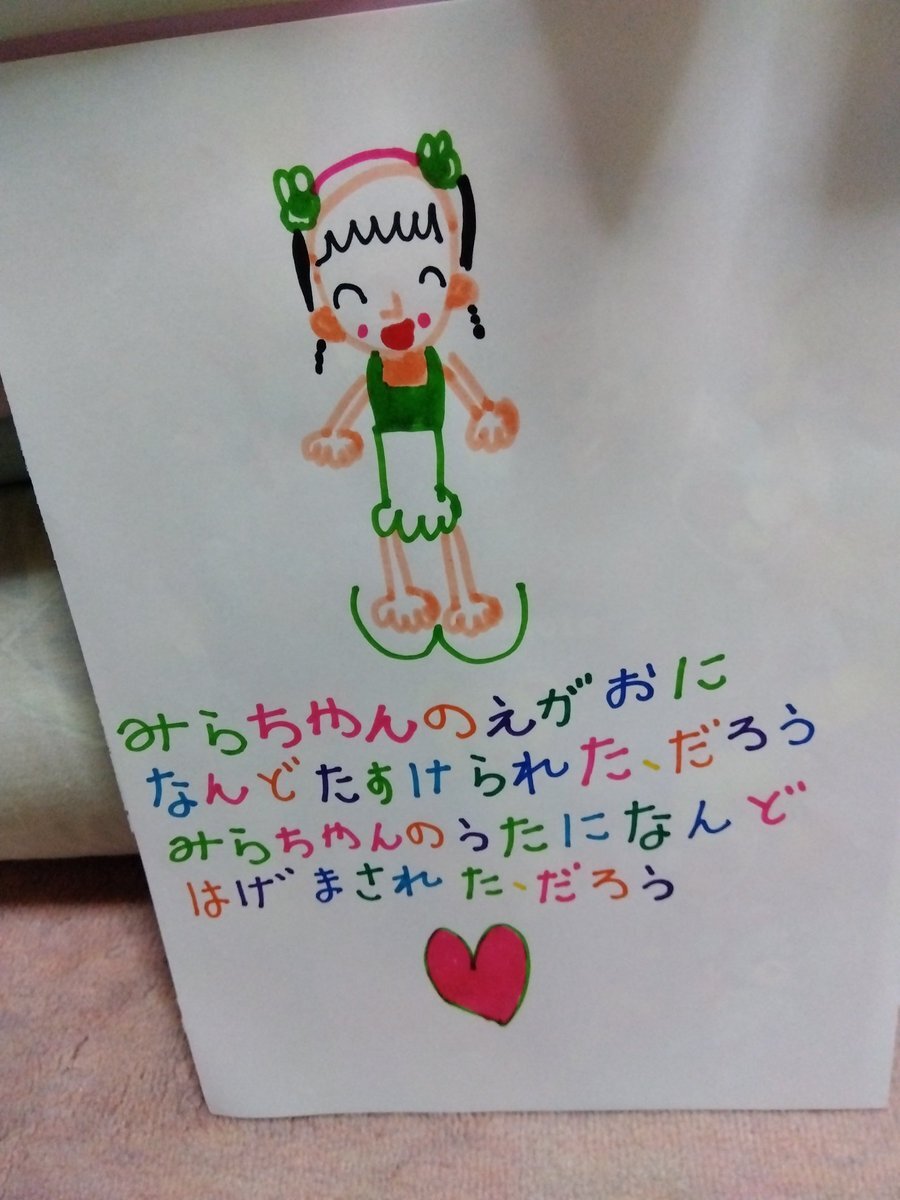 みらちゃんのえがおに
なんどたすけられた、だろう
みらちゃんのうたになんど
はげまされた、だろう